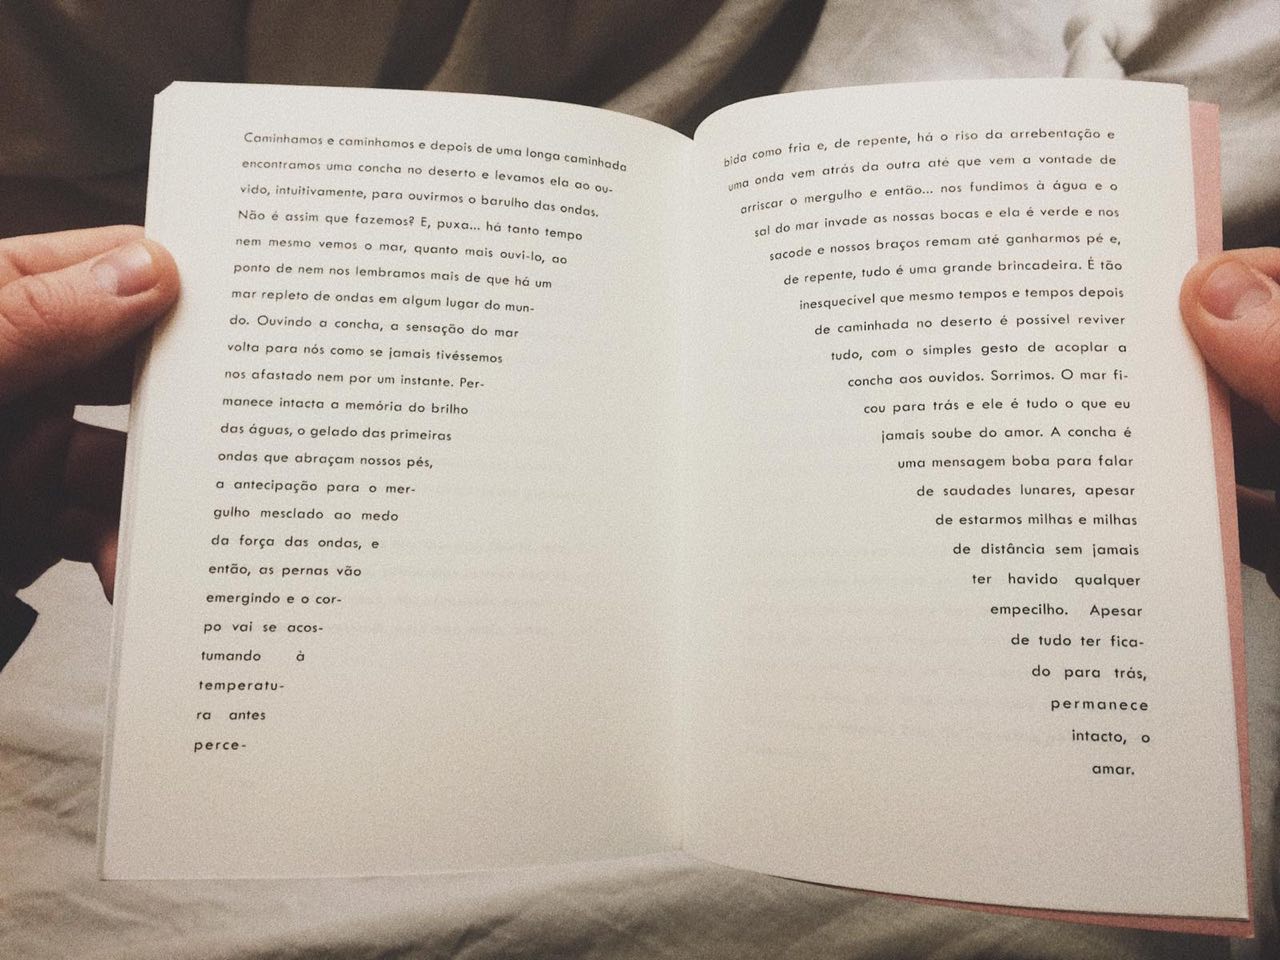 Caminhamos e caminhamos e depois de uma longa caminhada
encontramos uma concha no deserto e levamos ela ao ou-
vido, intuitivamente, para ouvirmos o barulho das ondas.
Não é assim que fazemos? E, puxa... há tanto tempo
nem mesmo vemos o mar, quanto mais ouvi-lo, ao
ponto de nem nos lembramos mais de que há um
mar repleto de ondas em algum lugar do mun-
do. Ouvindo a concha, a sensação do mar
volta para nós como se jamais tivéssemos
nos afastado nem por um instante. Per-
manece intacta a memória do brilho
das águas, o gelado das primeiras
ondas que abraçam nossos pés,
a antecipação para o mer-
gulho mesclado ao medo
da força das ondas, e
então, as pernas vão
emergindo e o cor-
po vai se acos-
tumando à
temperatu-
ra antes
perce-
bida como fria e, de repente, há o riso da arrebentação e
uma onda vem atrás da outra até que vem a vontade de
arriscar o mergulho e então... nos fundimos à água e o
sal do mar invade as nossas bocas e ela é verde e nos
sacode e nossos braços remam até ganharmos pé e,
de repente, tudo é uma grande brincadeira. É tão
inesquecível que mesmo tempos e tempos depois
de caminhada no deserto é possível reviver
tudo, com o simples gesto de acoplar a
concha aos ouvidos. Sorrimos. O mar fi-
cou para trás e ele é tudo o que eu
jamais soube do amor. A concha é
uma mensagem boba para falar
de saudades lunares, apesar
de estarmos milhas e milhas
de distância sem jamais
ter havido qualquer
empecilho. Apesar
de tudo ter fica-
do para trás,
permanece
intacto, o
amar.